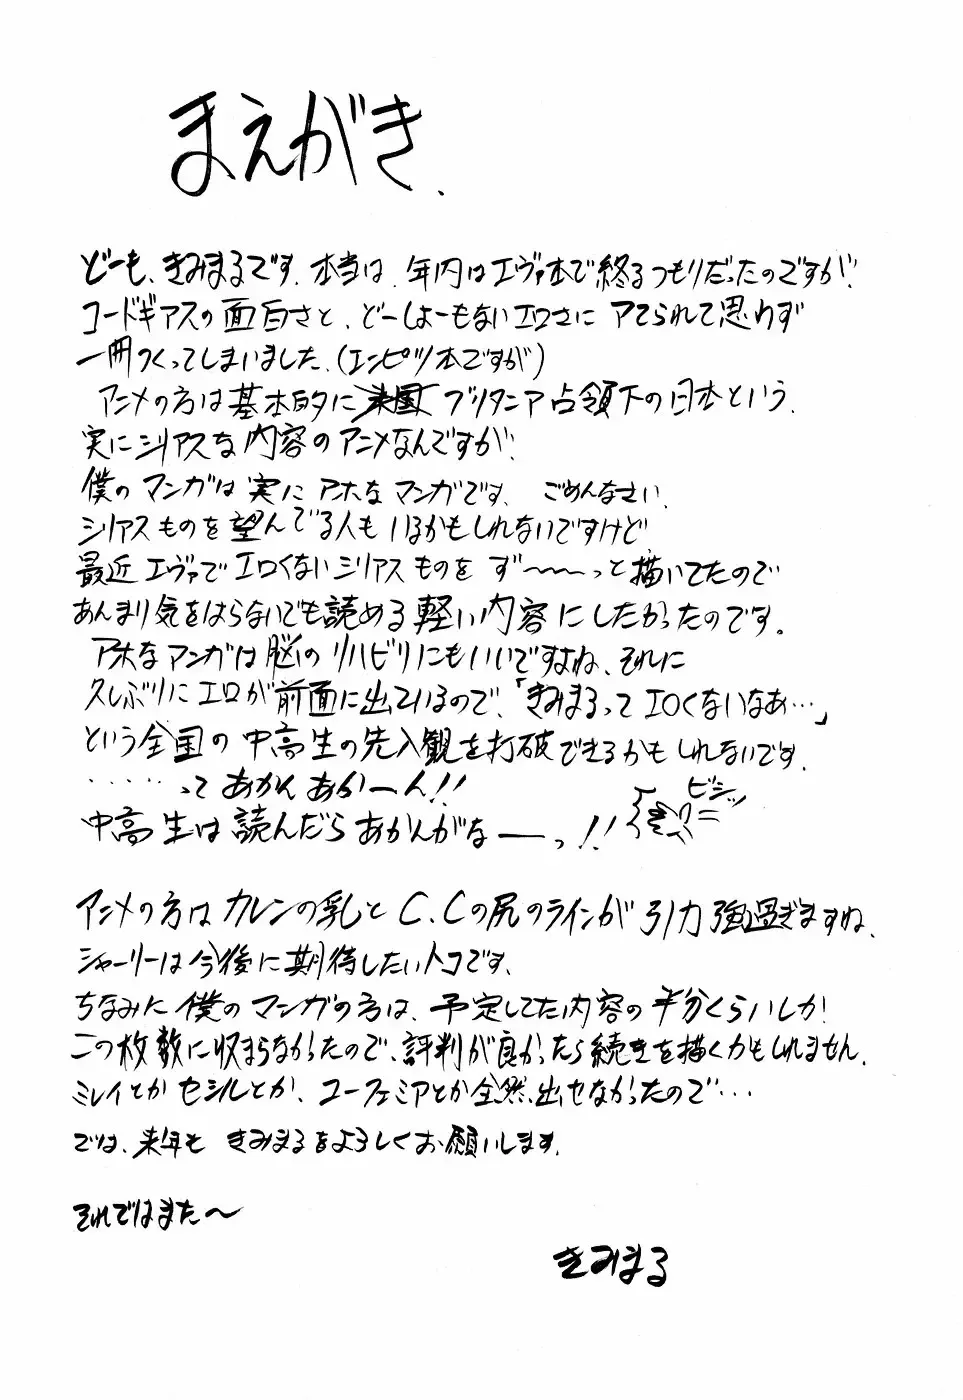 まえがき、
どーも、きみまるです。本当は、年内はエヴァ本で終るつもりだったのですが、
コードギアスの面白さと、どーしょーもないエロさにアてられて思わず
一冊つくってしまいました。(エンピツ本ですが)
アニメの方は基本的に米国ブリタニア占領下の日本という、
実にシリアスな内容のアニメなんですが、
僕のマンガは実にアホなマンガです、ごめんなさい、
シリアスものを望んでる人もいるかもしれないですけど
最近エヴァでエロくないシリアスものをず〜〜〜っと描いてたので
あんまり気をはらないでも読める軽い内容にしたかったのです。
アホなマンガは脳のリハビリにもいいですよね、それに
久しぶりにエロが前面に出ているので、「きみまるってエロくないなあ…」
という全国の中高生の先入観を打破できるかもしれないです。
・・・・・ってあかんあかーん!!
中高生は読んだらあかんがなーっ!!
ビシッ
アニメの方はカレンの乳とC.Cの尻のラインが引力強過ぎますね、
シャーリーは今後に期待したいトコです、
ちなみに僕のマンガの方は、予定してた内容の半分くらいしか!
この枚数に収まらなかったので、評判が良かったら続きを描くかもしれません、
ミレイとかセシルとか、ユーフェミアとか全然出せなかったので・・・
では、来年もきみまるをよろしくお願いします、
それではまた〜
きみまる